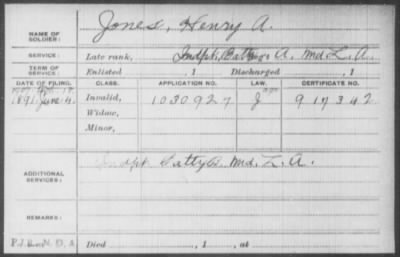 NAME OF SOLDIER: Jones, Henry A.
SERVICE: Late rank, Indpt. Batty A. Md. L. A.
TERM OF SERVICE: Enlisted , 1 Discharged , 1
DATE OF FILING. CLASS. APPLICATION NO. LAW. CERTIFICATE NO.
1891 June 4. Invalid, 1030927 J 917342
Widow,
Minor,
ADDITIONAL SERVICES: Indpt Batty B Md. L. A.
REMARKS:
Died , 1 , at